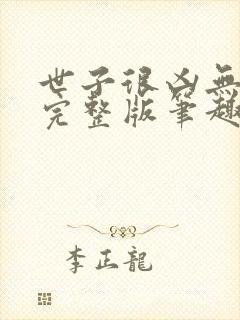 世子很凶無
完整版筆趣
李正龍